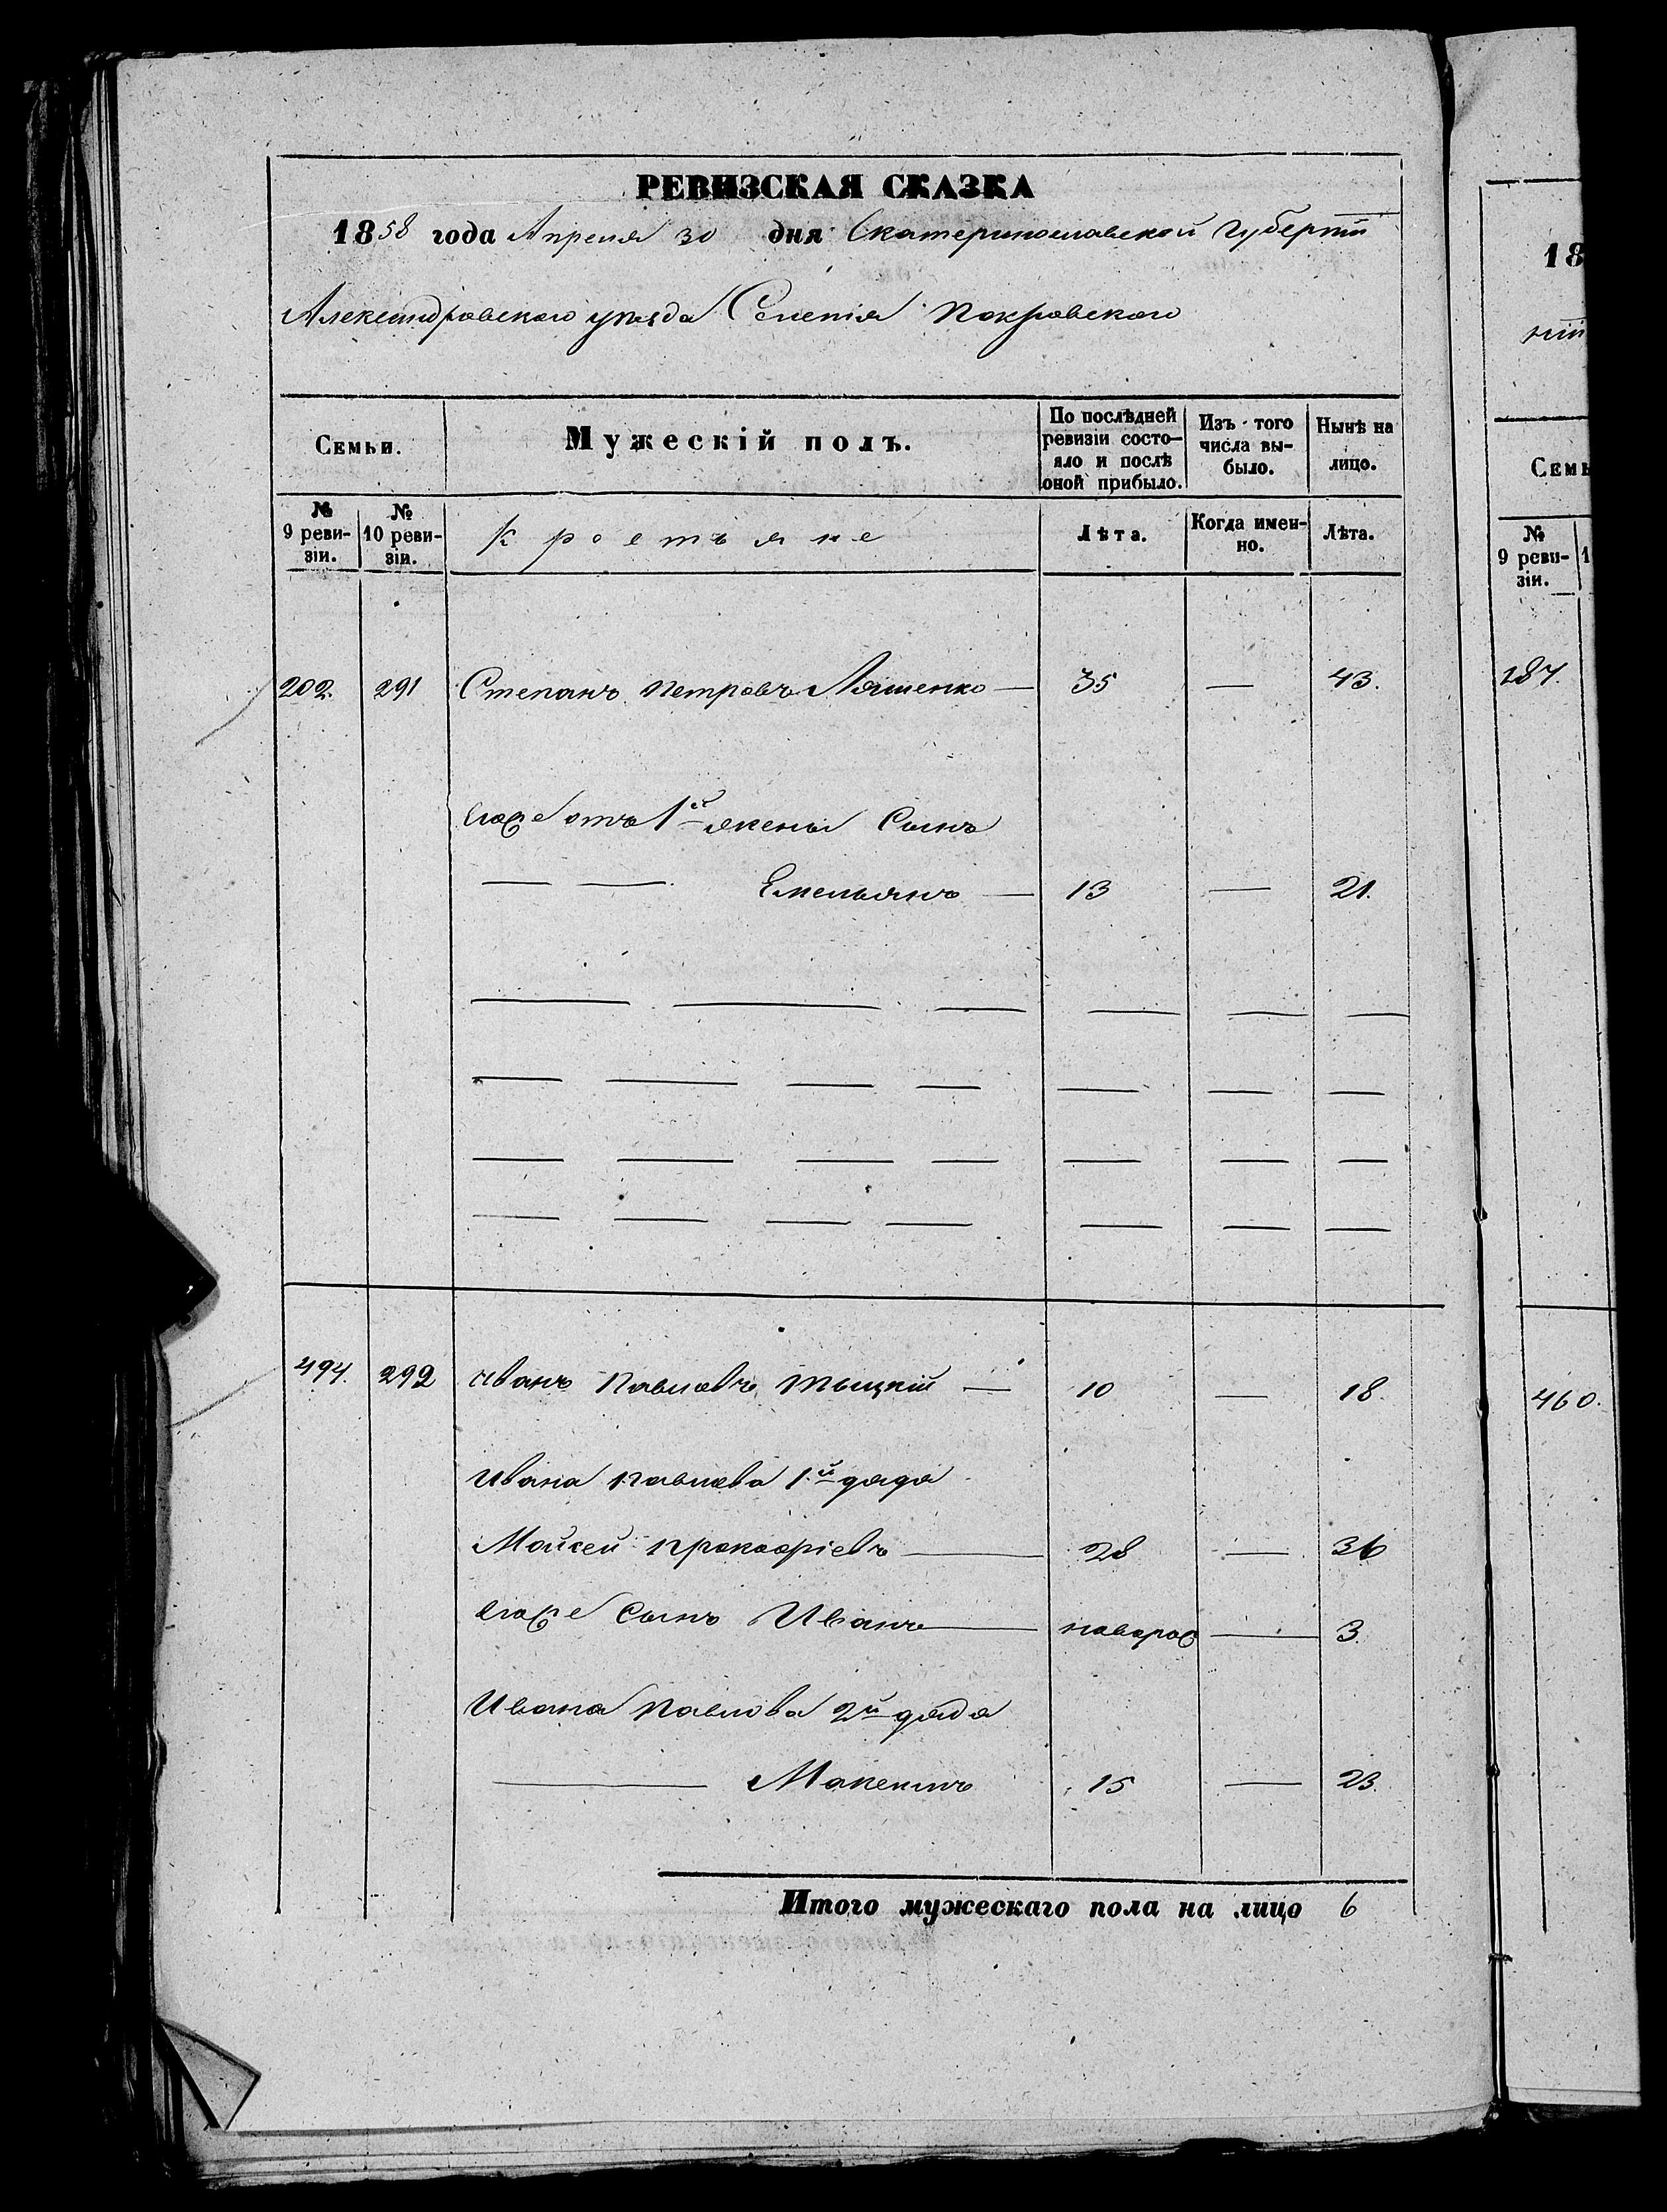 РЕВИЗСКАЯ СКАЗКА
1858 года Апреля 30 дня Екатеринославской Губерніи
Александровского уѣзда Селенія Покровского
Семьи.
Мужескій полъ.
По послѣдней ревизіи состо-
яло и послѣ
оной прибыло.
Изъ того
числа вы-
было.
Нынѣ на
лицо.
№
9 реви-
зіи.
№
10 реви-
зіи.
Крестьяне
Лѣта.
Когда имен-
но.
Лѣта.
202. 291 Степанъ Петровъ Ляшенко — 35 — 43.
егоже отъ 1й жены Сынъ
— — Емельянъ — 13 — 21.
494. 292 Иванъ Павловъ Тыцкій — 10 — 18.
Ивана Павлова 1й дядя
Мойсей Прокофіевъ — 28 — 36
егоже Сынъ Иванъ — новорож — 3.
Ивана Павлова 2й дядя
— Макеимъ 15 — 23.
Итого мужескаго пола на лицо 6
18
ніи
Семь
№
9 реви-
зіи.
1
287.
460.